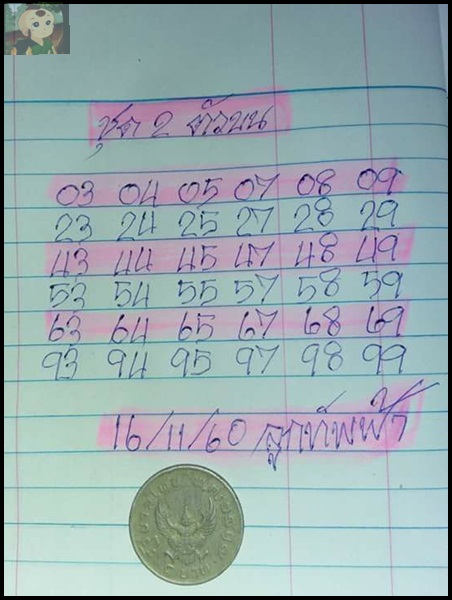 ชุด 2 ตัวบน
03 04 05 07 08 09
23 24 25 27 28 29
43 44 45 47 48 49
53 54 55 57 58 59
63 64 65 67 68 69
93 94 95 97 98 99
16/11/60 ลูกทัพฟ้า